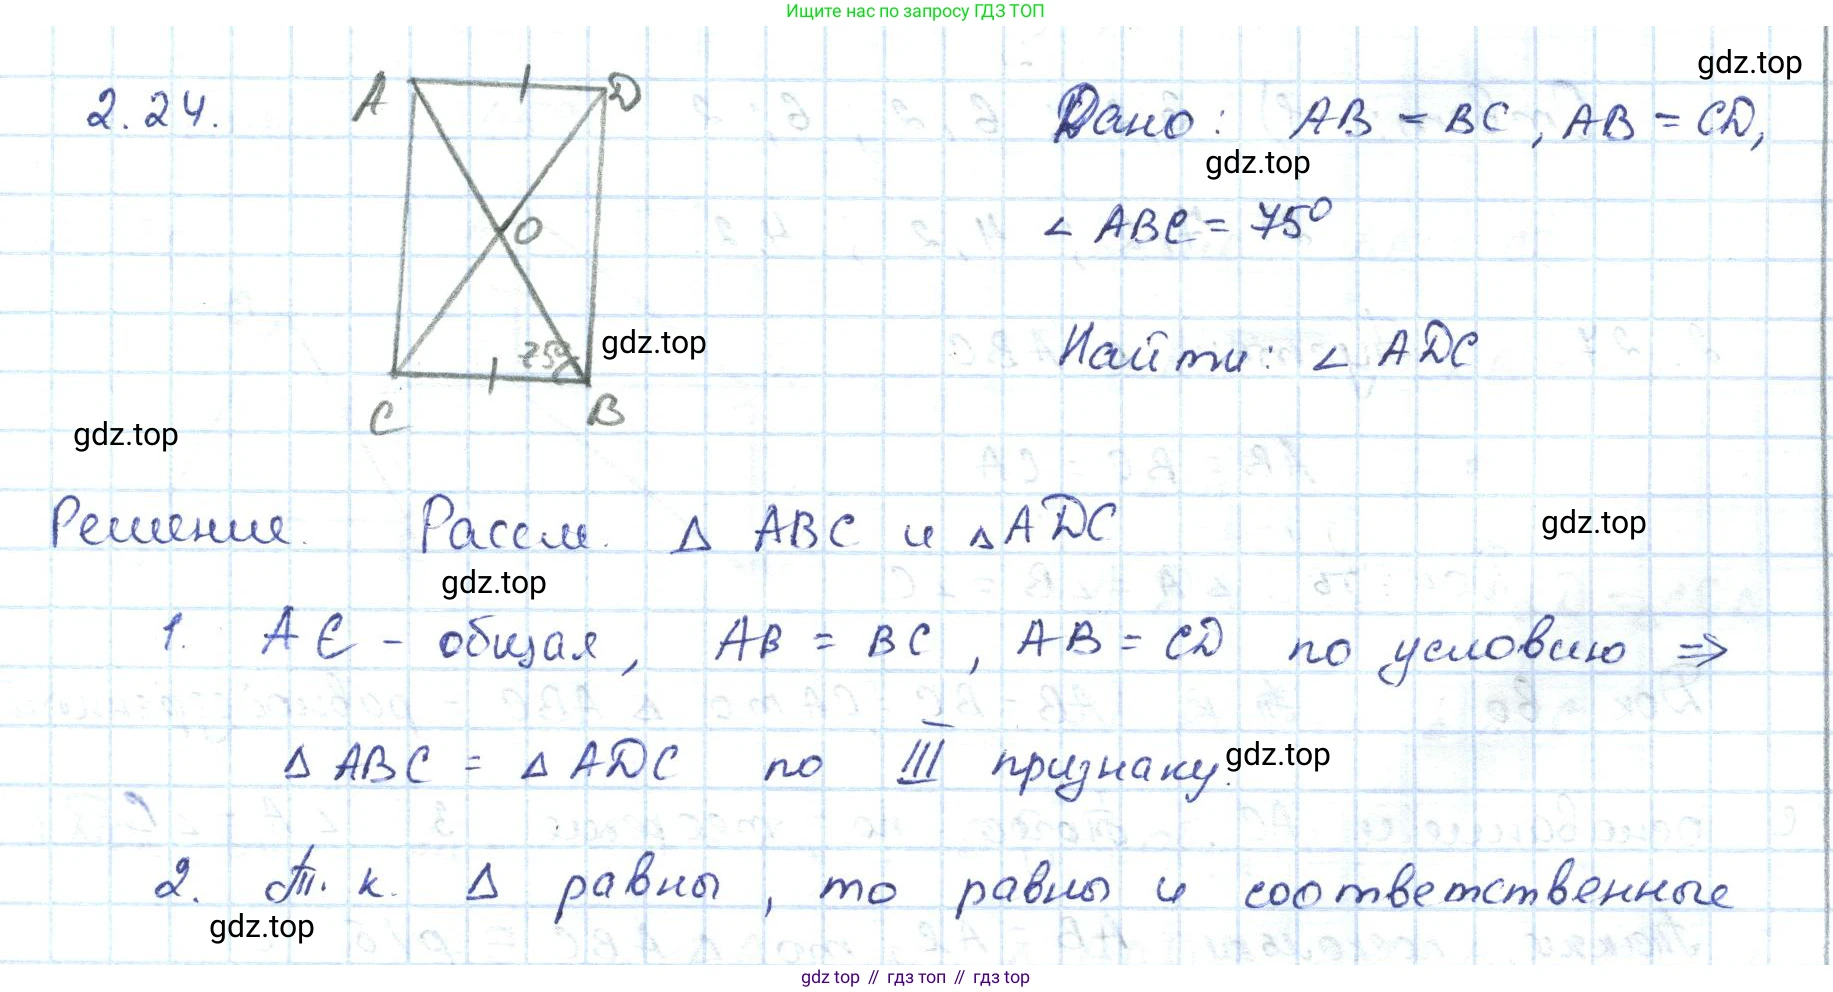 Ищите нас по запросу ГДЗ ТОП
gdz.top
2.24.
A
D
O
75°
C
B
Дано: AB = BC, AB = CD,
gdz.top
∠ ABC = 75°
gdz.top
Найти: ∠ ADC
gdz.top
Решение. Рассм. Δ ABC и Δ ADC
gdz.top
gdz.top
1. AC - общая, AB = BC, AB = CD по условию ⇒
Δ ABC = Δ ADC по III признаку.
gdz.top
2. Т. к. Δ равны, то равны и соответственные
gdz.top
gdz.top // гдз топ // гдз top